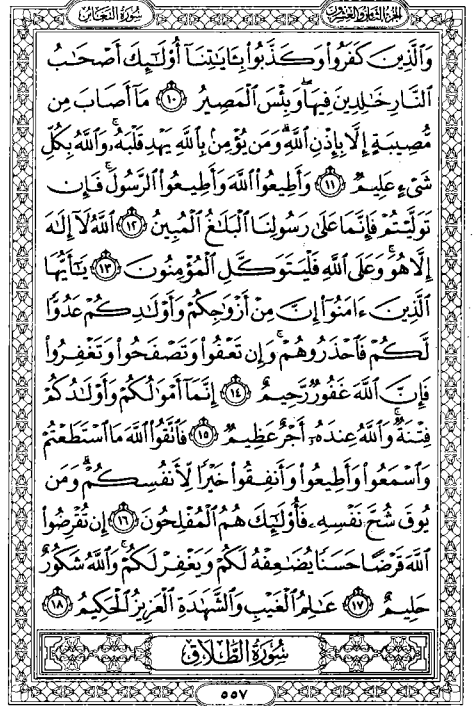 الجزء الثامن والعشرون
سورة التغابن
وَالَّذِينَ كَفَرُوا وَكَذَّبُوا بِـَٔايَـٰتِنَا أُولَـٰٓئِكَ أَصْحَـٰبُ
النَّارِ خَـٰلِدِينَ فِيهَا ۖ وَبِئْسَ الْمَصِيرُ ١٠ مَآ أَصَابَ مِن
مُّصِيبَةٍ إِلَّا بِإِذْنِ اللَّهِ ۗ وَمَن يُؤْمِنۢ بِاللَّهِ يَهْدِ قَلْبَهُۥ ۚ وَاللَّهُ بِكُلِّ
شَىْءٍ عَلِيمٌ ١١ وَأَطِيعُوا اللَّهَ وَأَطِيعُوا الرَّسُولَ ۚ فَإِن
تَوَلَّيْتُمْ فَإِنَّمَا عَلَىٰ رَسُولِنَا الْبَلَـٰغُ الْمُبِينُ ١٢ اللَّهُ لَآ إِلَـٰهَ
إِلَّا هُوَ ۚ وَعَلَى اللَّهِ فَلْيَتَوَكَّلِ الْمُؤْمِنُونَ ١٣ يَـٰٓأَيُّهَا
الَّذِينَ ءَامَنُوٓا إِنَّ مِنْ أَزْوَٰجِكُمْ وَأَوْلَـٰدِكُمْ عَدُوًّا
لَّكُمْ فَاحْذَرُوهُمْ ۚ وَإِن تَعْفُوا وَتَصْفَحُوا وَتَغْفِرُوا
فَإِنَّ اللَّهَ غَفُورٌ رَّحِيمٌ ١٤ إِنَّمَآ أَمْوَٰلُكُمْ وَأَوْلَـٰدُكُمْ
فِتْنَةٌ ۚ وَاللَّهُ عِندَهُۥٓ أَجْرٌ عَظِيمٌ ١٥ فَاتَّقُوا اللَّهَ مَا اسْتَطَعْتُمْ
وَاسْمَعُوا وَأَطِيعُوا وَأَنفِقُوا خَيْرًا لِّأَنفُسِكُمْ ۗ وَمَن
يُوقَ شُحَّ نَفْسِهِۦ فَأُولَـٰٓئِكَ هُمُ الْمُفْلِحُونَ ١٦ إِن تُقْرِضُوا
اللَّهَ قَرْضًا حَسَنًا يُضَـٰعِفْهُ لَكُمْ وَيَغْفِرْ لَكُمْ ۚ وَاللَّهُ شَكُورٌ
حَلِيمٌ ١٧ عَـٰلِمُ الْغَيْبِ وَالشَّهَـٰدَةِ الْعَزِيزُ الْحَكِيمُ ١٨
سُورَةُ الطَّلَاقِ
٥٥٧